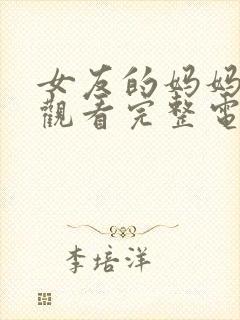 女友的妈妈
觀看完整電
李培洋